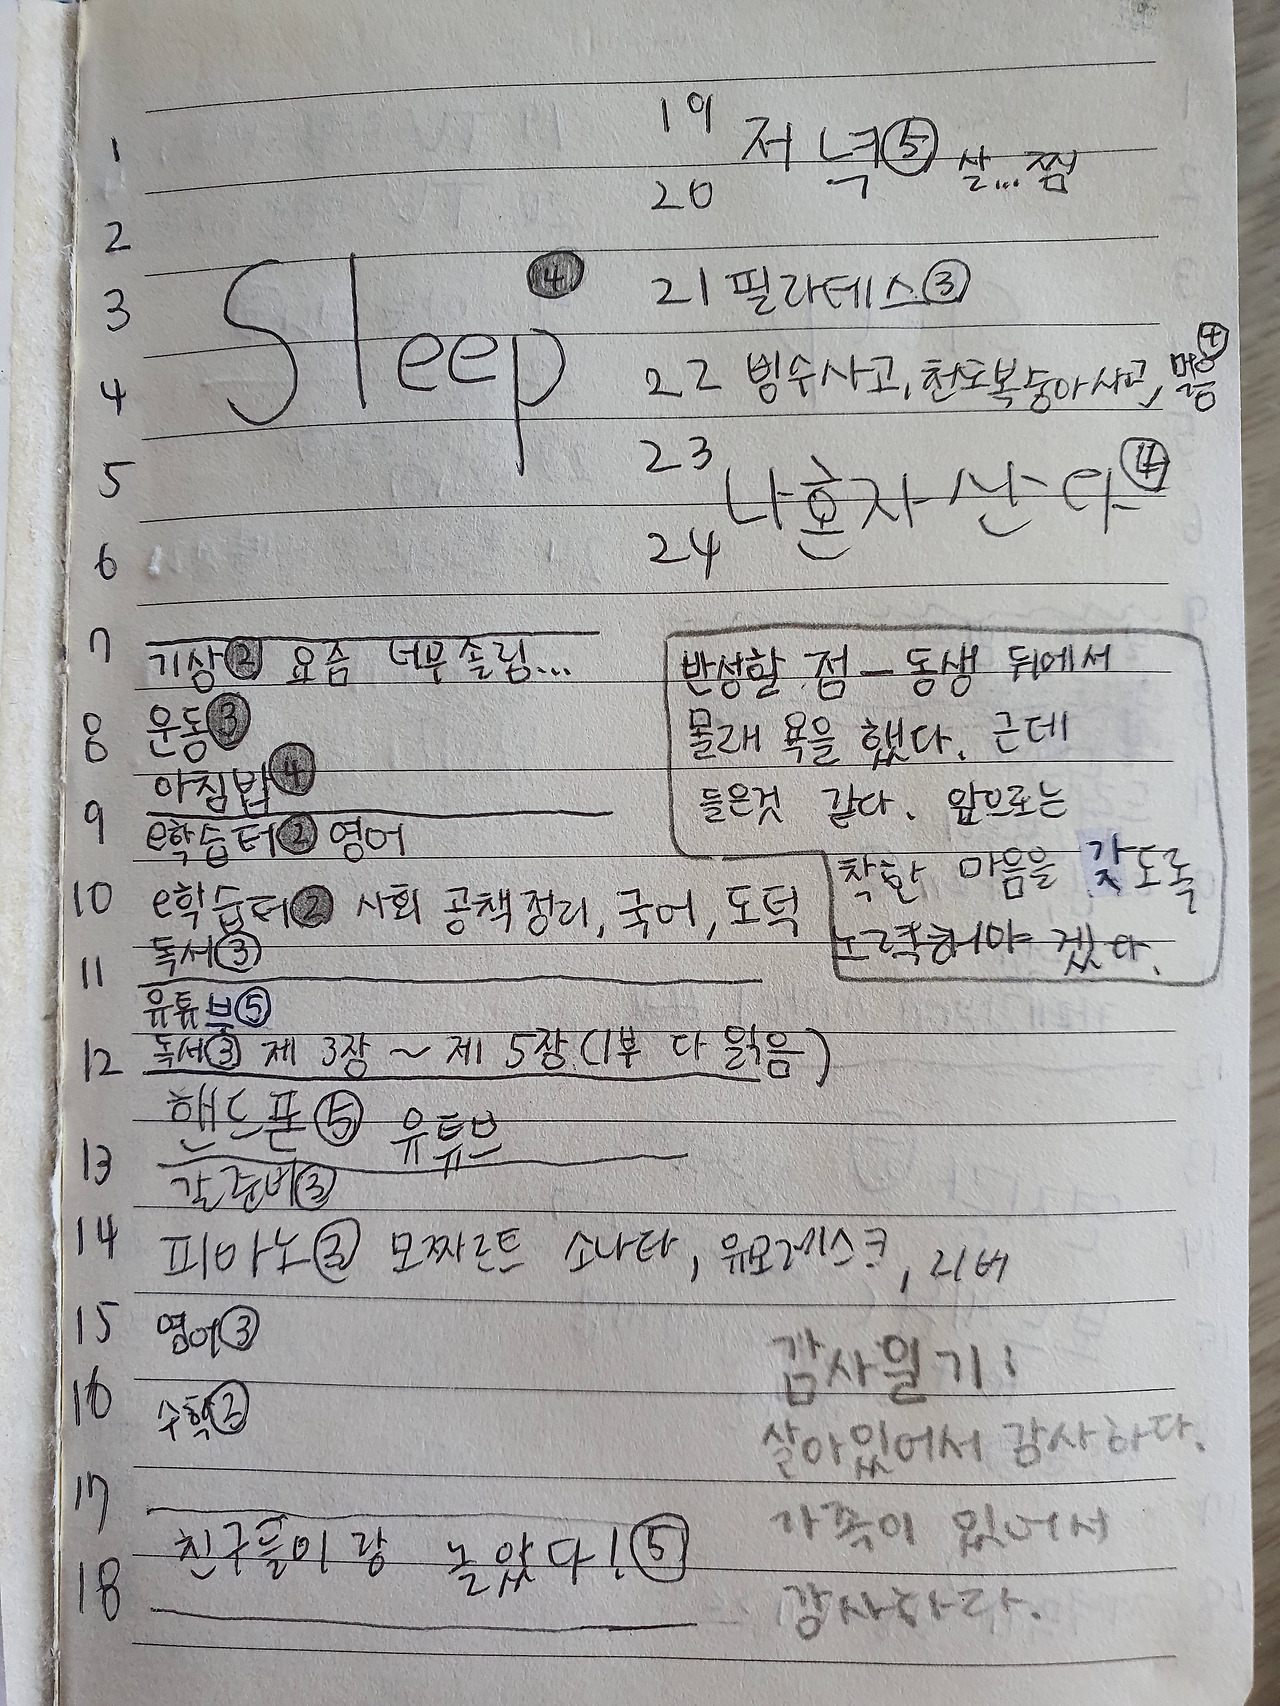 1
2
3
4
5
6
Sleep ④
7 기상② 요즘 너무 졸림...
8 운동③
아침밥④
9 e학습터② 영어
10 e학습터② 사회 공책정리, 국어, 도덕
독서③
11
유튜부⑤
12 독서③ 제 3장 ~ 제 5장 (1부 다 읽음)
핸드폰⑤ 유튜브
13
갈준비③
14 피아노③ 모짜르트 소나타, 유모레스크, 리버
15 영어③
16 수학②
17
친구들이랑 놀았다! ⑤
18
19
저녁⑤ 살...찜
20
21 필라테스③
22 빙수사고, 천도복숭아사고, 먹음④
23
나혼자산다④
24
반성할 점 - 동생 뒤에서
몰래 욕을 했다. 근데
들은것 같다. 앞으로는
착한 마음을 갖도록
노력해야 겠다.
감사일기:
살아있어서 감사하다.
가족이 있어서
감사하다.